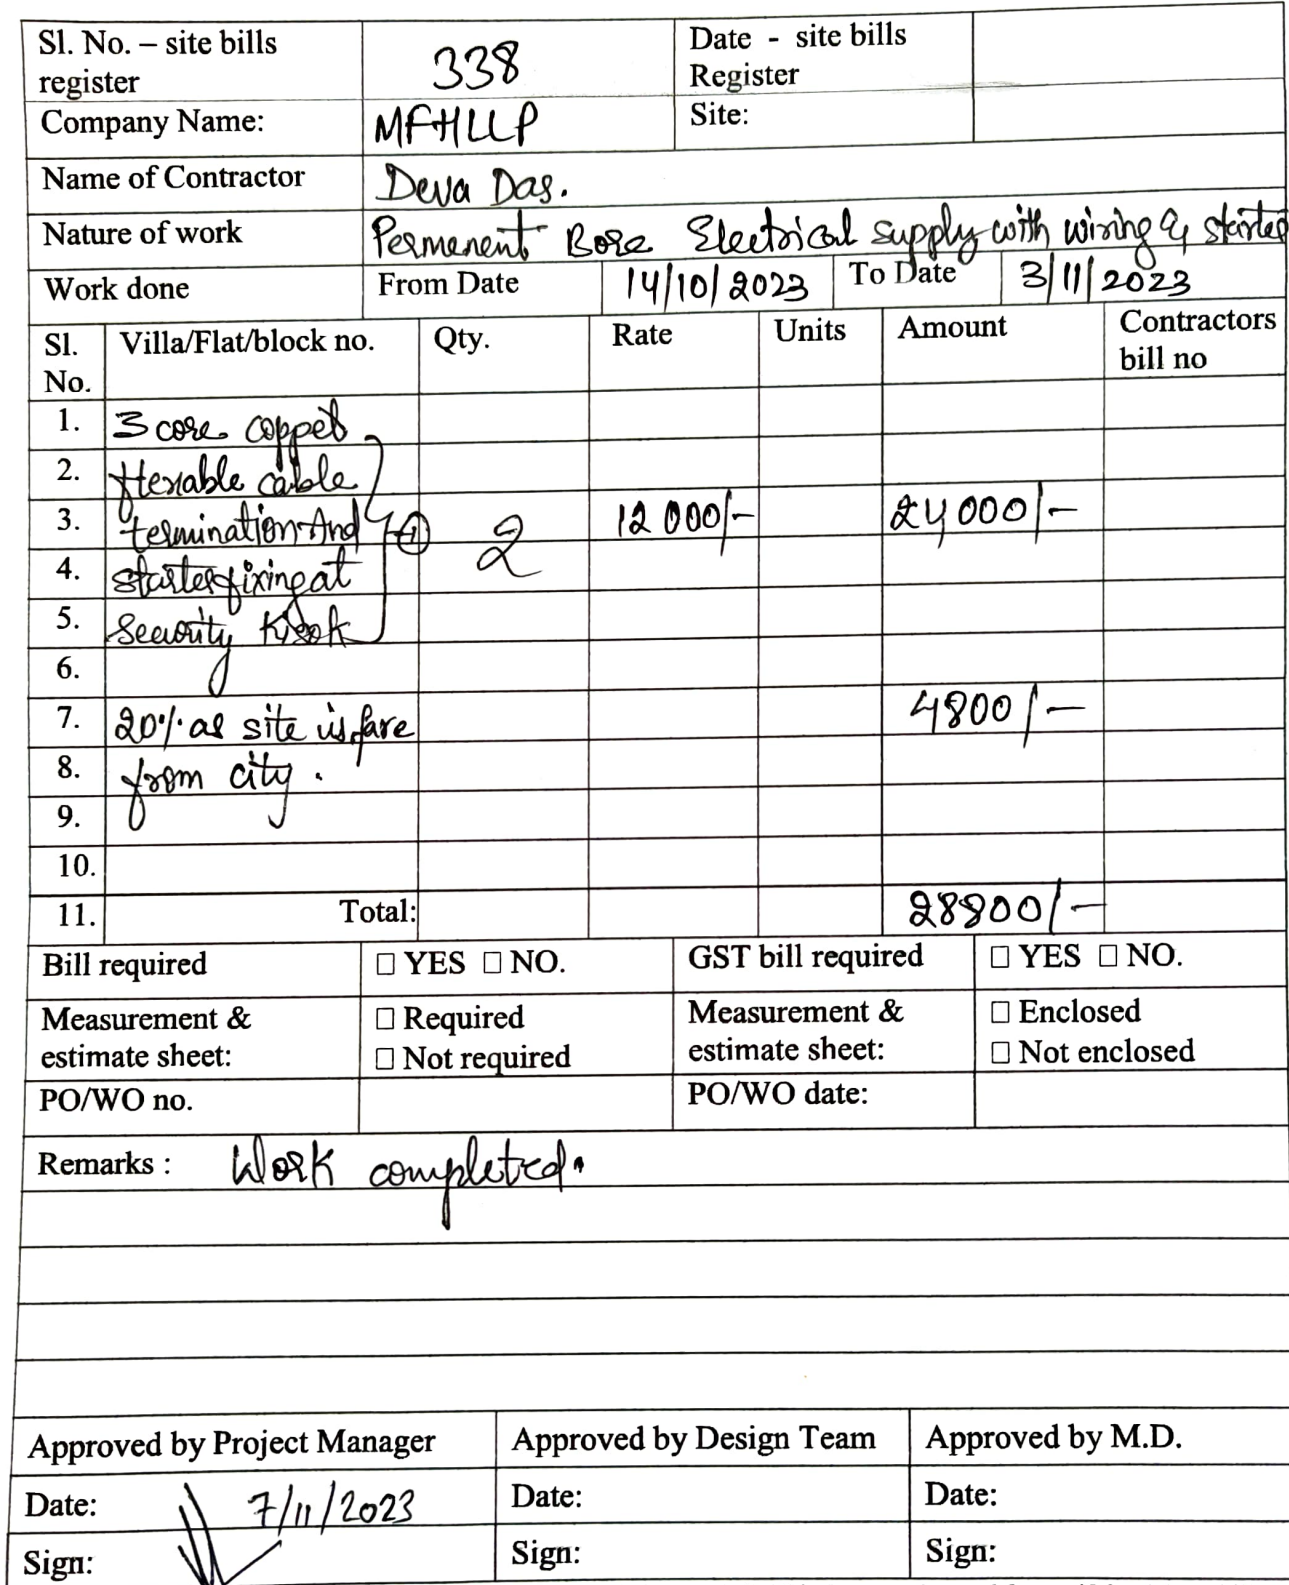 Sl. No. – site bills register 338 Date - site bills Register
Company Name: MFHLLP Site:
Name of Contractor Deva Das.
Nature of work Permenent Bore Electrical supply with wiring & starter
Work done From Date 14/10/2023 To Date 3/11/2023
Sl. No. Villa/Flat/block no. Qty. Rate Units Amount Contractors bill no
1. 3 core copper
2. flexable cable
3. termination And 2 12000/- 24000/-
4. starter fixing at
5. Security Kisok
6.
7. 20% as site is fare 4800/-
8. from city.
9.
10.
11. Total: 28800/-
Bill required □ YES □ NO. GST bill required □ YES □ NO.
Measurement & estimate sheet: □ Required □ Not required Measurement & estimate sheet: □ Enclosed □ Not enclosed
PO/WO no. PO/WO date:
Remarks : Work completed.
Approved by Project Manager Approved by Design Team Approved by M.D.
Date: 7/11/2023 Date: Date:
Sign: Sign: Sign: